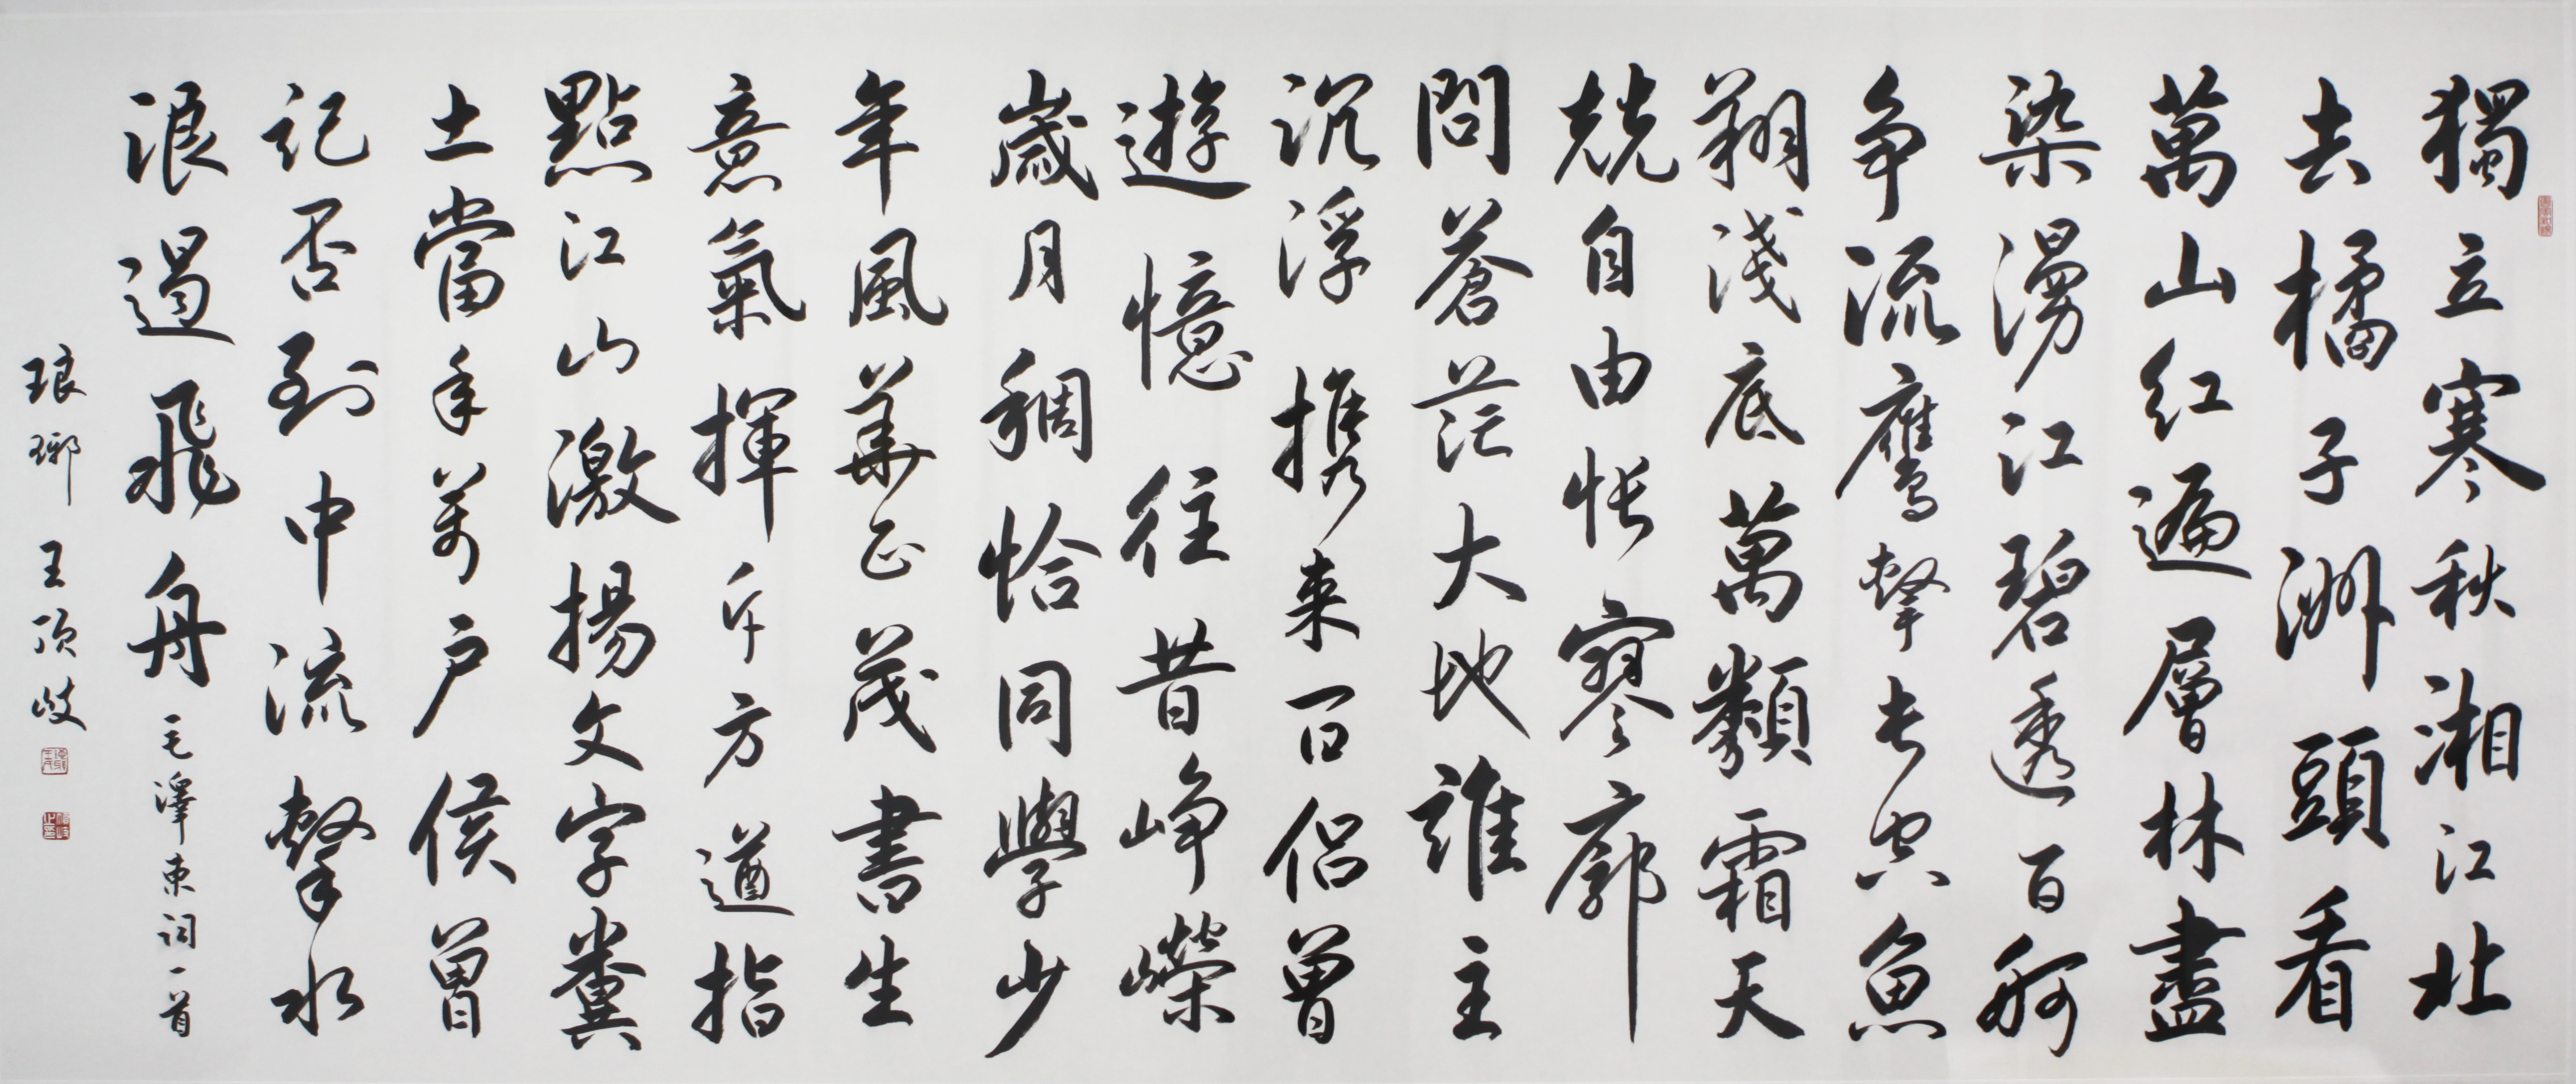 獨立寒秋湘江北
去橘子洲頭看
萬山紅遍層林盡
染漫江碧透百舸
争流鷹擊長空魚
翔淺底萬類霜天
競自由悵寥廓
問蒼茫大地誰主
沉浮攜来百侣曾
遊憶往昔崢嶸
歲月稠恰同學少
年風華正茂書生
意氣揮斥方遒指
點江山激揚文字糞
土當年萬户侯曾
記否到中流擊水
浪遏飛舟
毛澤東词一首
琅琊王顶岐